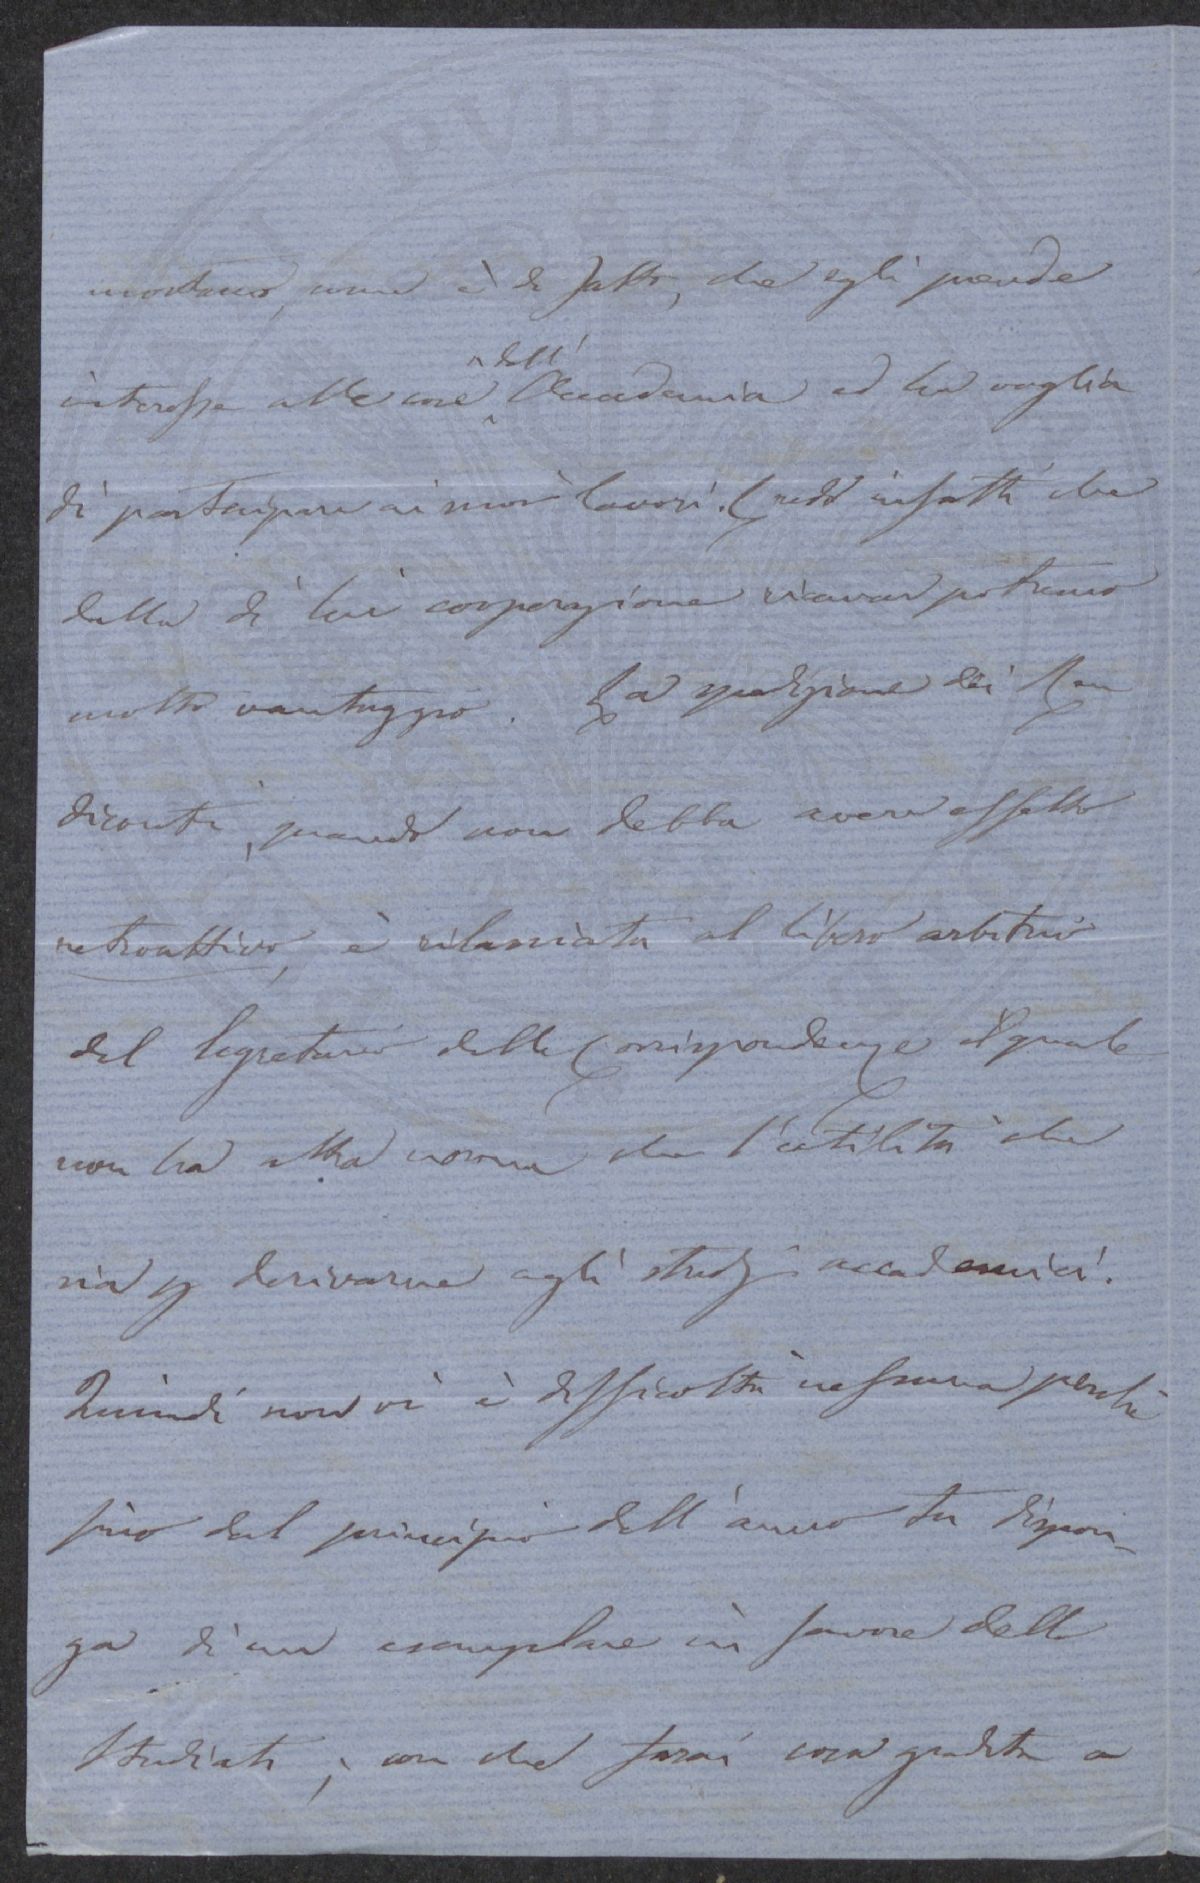 mostrano, come è di fatto, che egli prende
interesse alle cose dell' Accademia ed ha voglia
di partecipare ai suoi lavori. Credo infatti che
dalla di lui cooperazione ricavar potremo
molto vantaggio. La spedizione dei Ren
diconti, quando non debba avere effetto
retroattivo, è rilasciata al libero arbitrio
del Segretario delle Corrispondenze il quale
non ha altra norma che l'utilità che
sia p derivarne agli studj accademici.
Quindi non vi è difficoltà nessuna perchè
fino dal principio dell'anno tu dispon-
ga di un esemplare in favore dello
Studiati; con che farai cosa gradita a